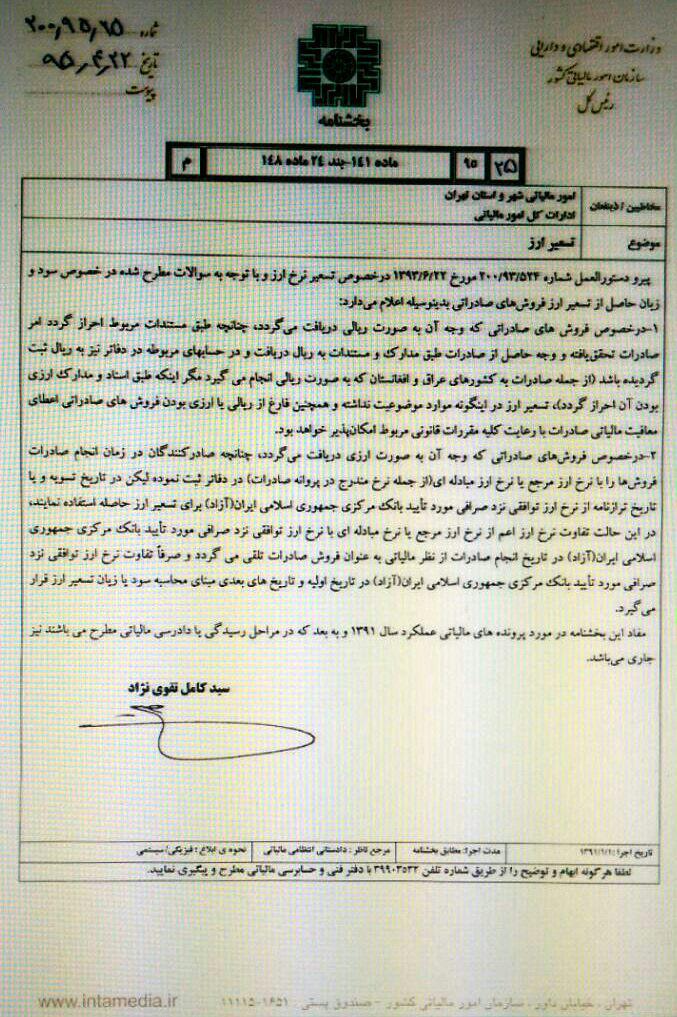 وزارت امور اقتصادی و دارایی
سازمان امور مالیاتی کشور
رئیس کل
بخشنامه
شماره ۲۰۰٫۹۵٫۲۵
تاریخ ۹۵٫۴٫۲۲
پیوست
۲۵ ۹۵ ماده ۱۴۱-بند ۲۴ ماده ۱۴۸ م
مخاطبین / ذینفعان امور مالیاتی شهر و استان تهران
ادارات کل امور مالیاتی
موضوع تسعیر ارز
پیرو دستورالعمل شماره ۲۰۰/۹۳/۵۲۴ مورخ ۱۳۹۳/۶/۲۲ درخصوص تسعیر نرخ ارز و با توجه به سوالات مطرح شده در خصوص سود و
زیان حاصل از تسعیر ارز فروش‌های صادراتی بدینوسیله اعلام می‌دارد:
۱-درخصوص فروش های صادراتی که وجه آن به صورت ریالی دریافت می‌گردد، چنانچه طبق مستندات مربوط احراز گردد امر
صادرات تحقق‌یافته و وجه حاصل از صادرات طبق مدارک و مستندات به ریال دریافت و در حسابهای مربوطه در دفاتر نیز به ریال ثبت
گردیده باشد (از جمله صادرات به کشورهای عراق و افغانستان که به صورت ریالی انجام می گیرد مگر اینکه طبق اسناد و مدارک ارزی
بودن آن احراز گردد)، تسعیر ارز در اینگونه موارد موضوعیت نداشته و همچنین فارغ از ریالی یا ارزی بودن فروش های صادراتی اعطای
معافیت مالیاتی صادرات با رعایت کلیه مقررات قانونی مربوط امکان‌پذیر خواهد بود.
۲-درخصوص فروش‌های صادراتی که وجه آن به صورت ارزی دریافت می‌گردد، چنانچه صادرکنندگان در زمان انجام صادرات
فروش‌ها را با نرخ ارز مرجع یا نرخ ارز مبادله ای(از جمله نرخ مندرج در پروانه صادرات) در دفاتر ثبت نموده لیکن در تاریخ تسویه و یا
تاریخ ترازنامه از نرخ ارز توافقی نزد صرافی مورد تأیید بانک مرکزی جمهوری اسلامی ایران(آزاد) برای تسعیر ارز حاصله استفاده نمایند،
در این حالت تفاوت نرخ ارز اعم از نرخ ارز مرجع یا نرخ مبادله ای با نرخ ارز توافقی نزد صرافی مورد تأیید بانک مرکزی جمهوری
اسلامی ایران(آزاد) در تاریخ انجام صادرات از نظر مالیاتی به عنوان فروش صادرات تلقی می گردد و صرفاً تفاوت نرخ ارز توافقی نزد
صرافی مورد تأیید بانک مرکزی جمهوری اسلامی ایران(آزاد) در تاریخ اولیه و تاریخ های بعدی مبنای محاسبه سود یا زیان تسعیر ارز قرار
می‌گیرد.
مفاد این بخشنامه در مورد پرونده های مالیاتی عملکرد سال ۱۳۹۱ و به بعد که در مراحل رسیدگی یا دادرسی مالیاتی مطرح می باشند نیز
جاری می‌باشد.
سید کامل تقوی نژاد
تاریخ اجرا :۱۳۹۱/۱/۱ مدت اجرا: مطابق بخشنامه مرجع ناظر : دادستانی انتظامی مالیاتی نحوه ی ابلاغ : فیزیکی/ سیستمی
لطفا هرگونه ابهام و توضیح را از طریق شماره تلفن ۳۹۹۰۳۵۳۲ با دفتر فنی و حسابرسی مالیاتی مطرح و پیگیری نمایید.
تهران ، خیابان داور ، سازمان امور مالیاتی کشور - صندوق پستی : ۱۶۵۱-۱۱۱۱۵ www.intamedia.ir